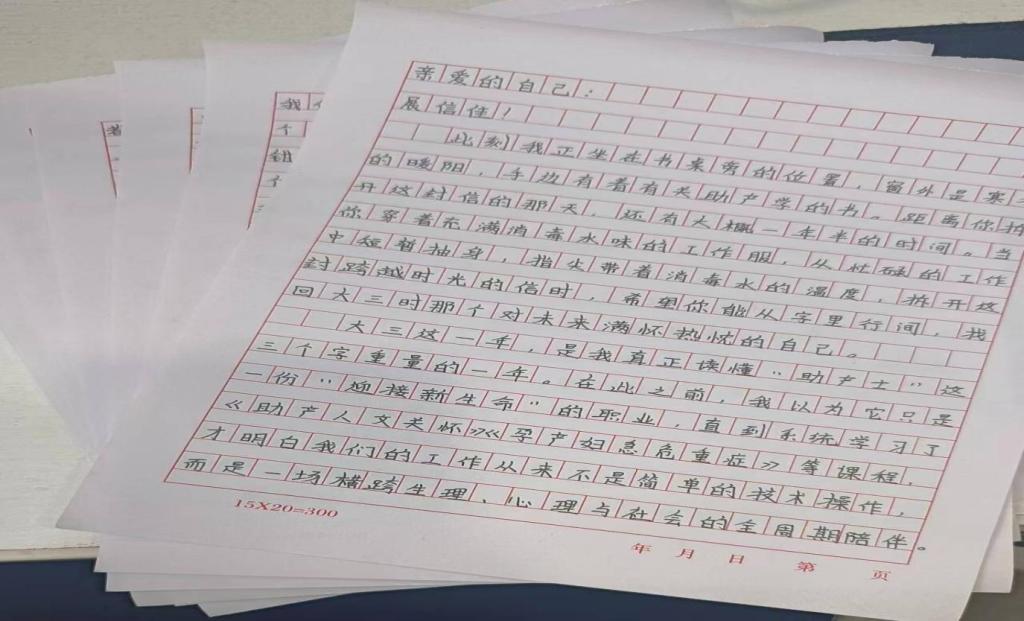 亲爱的自己：
展信佳！
此刻我正坐在书桌旁的位置，窗外是寒
的暖阳，手边有着有关助产学的书。距离你拆
开这封信的那天，还有大概一年半的时间。当
你穿着充满消毒水味的工作服，从忙碌的工作
中短暂抽身，指尖带着消毒水的温度，拆开这
封跨越时光的信时，希望你能从字里行间，找
回大三时那个对未来满怀热忱的自己。
大三这一年，是我真正读懂“助产士”这
三个字重量的一年。在此之前，我以为它只是
一份“迎接新生命”的职业，直到系统学习了
《助产人文关怀》《孕产妇急危重症》等课程，
才明白我们的工作从来不是简单的技术操作，
而是一场横跨生理、心理与社会的全周期陪伴。
15X20=300
年 月 日 第 页
我
个